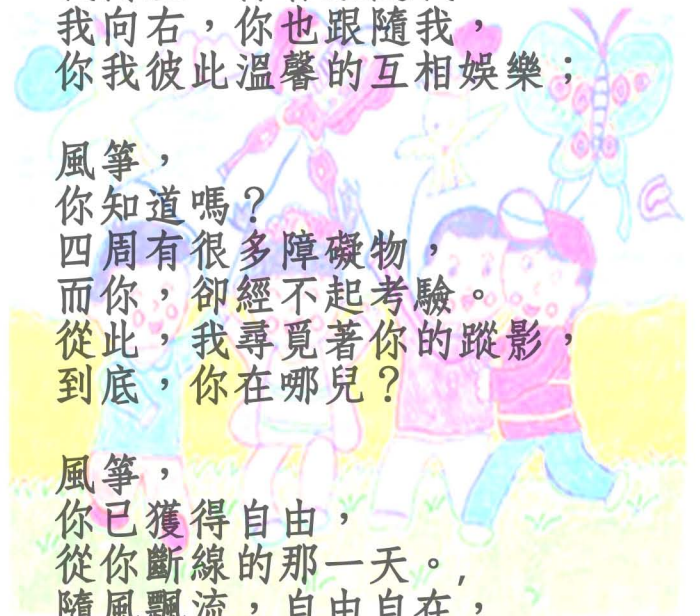 我向右，你也跟隨我，
你我彼此溫馨的互相娛樂；
風箏，
你知道嗎？
四周有很多障礙物，
而你，卻經不起考驗。
從此，我尋覓著你的蹤影，
到底，你在哪兒？
風箏，
你已獲得自由，
從你斷線的那一天。,
隨風飄流，自由自在，